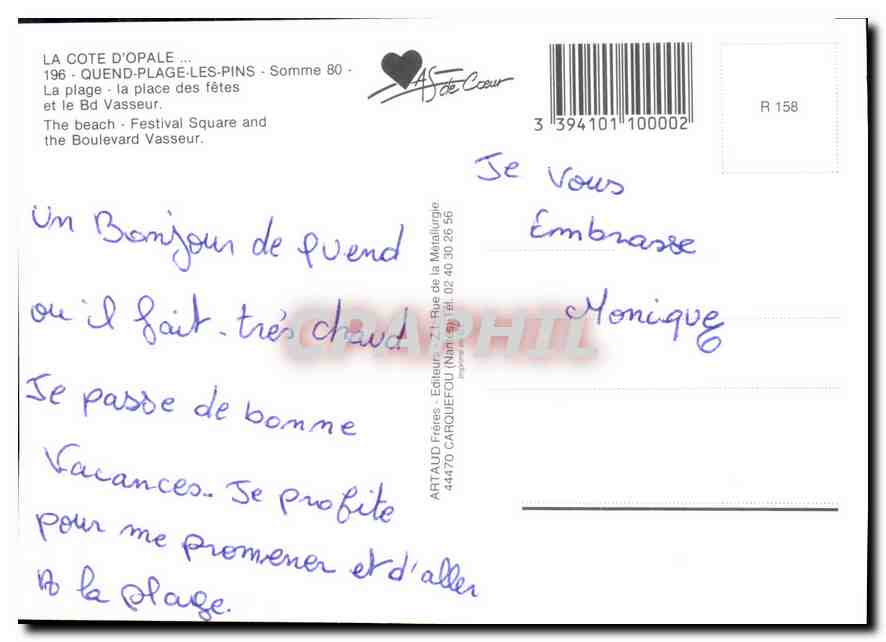 LA COTE D'OPALE ...
196 - QUEND-PLAGE-LES-PINS - Somme 80 -
La plage - la place des fêtes
et le Bd Vasseur.
The beach - Festival Square and
the Boulevard Vasseur.
AS de Cœur
3 394101 100002
R 158
un Bonjour de Quend
ou il fait très chaud
Je passe de bonne
Vacances.. Je profite
pour me promener et d'aller
A la plage.
ARTAUD Frères - Editeurs - Z.I. Rue de la Métallurgie
44470 CARQUEFOU (Nantes) Tél. 02 40 30 26 56
CPAPHIL
Je Vous
Embrasse
Monique